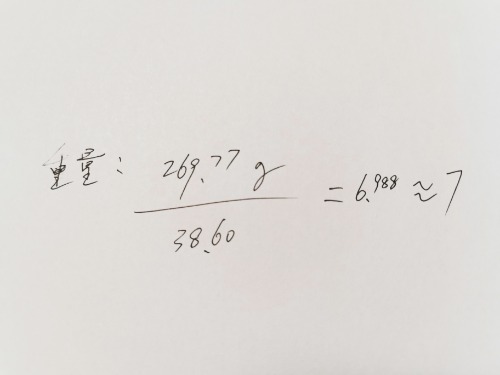 重量: 269.77 g / 38.60 = 6.988 ≈ 7